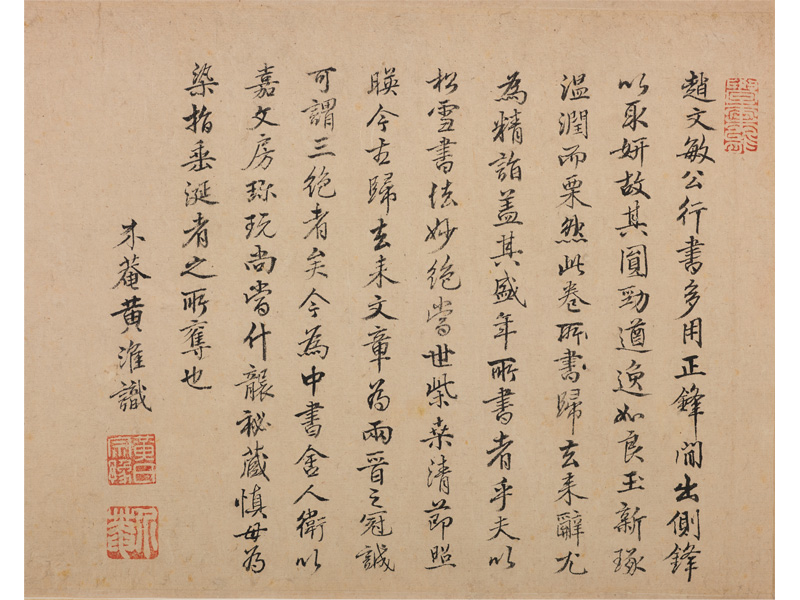 趙文敏公行書多用正鋒間出側鋒
以取妍故其圓勁遒逸如良玉新琢
温潤而栗然此卷所書歸去来辭尤
為精詣盖其盛年所書者乎夫以
松雪書法妙絶當世柴桑清節照
暎今古歸去来文章為兩晋之冠誠
可謂三絶者矣今為中書舍人衛以
嘉文房珎玩尚當什襲祕藏慎毋為
染指垂涎者之所奪也
介菴黄淮識